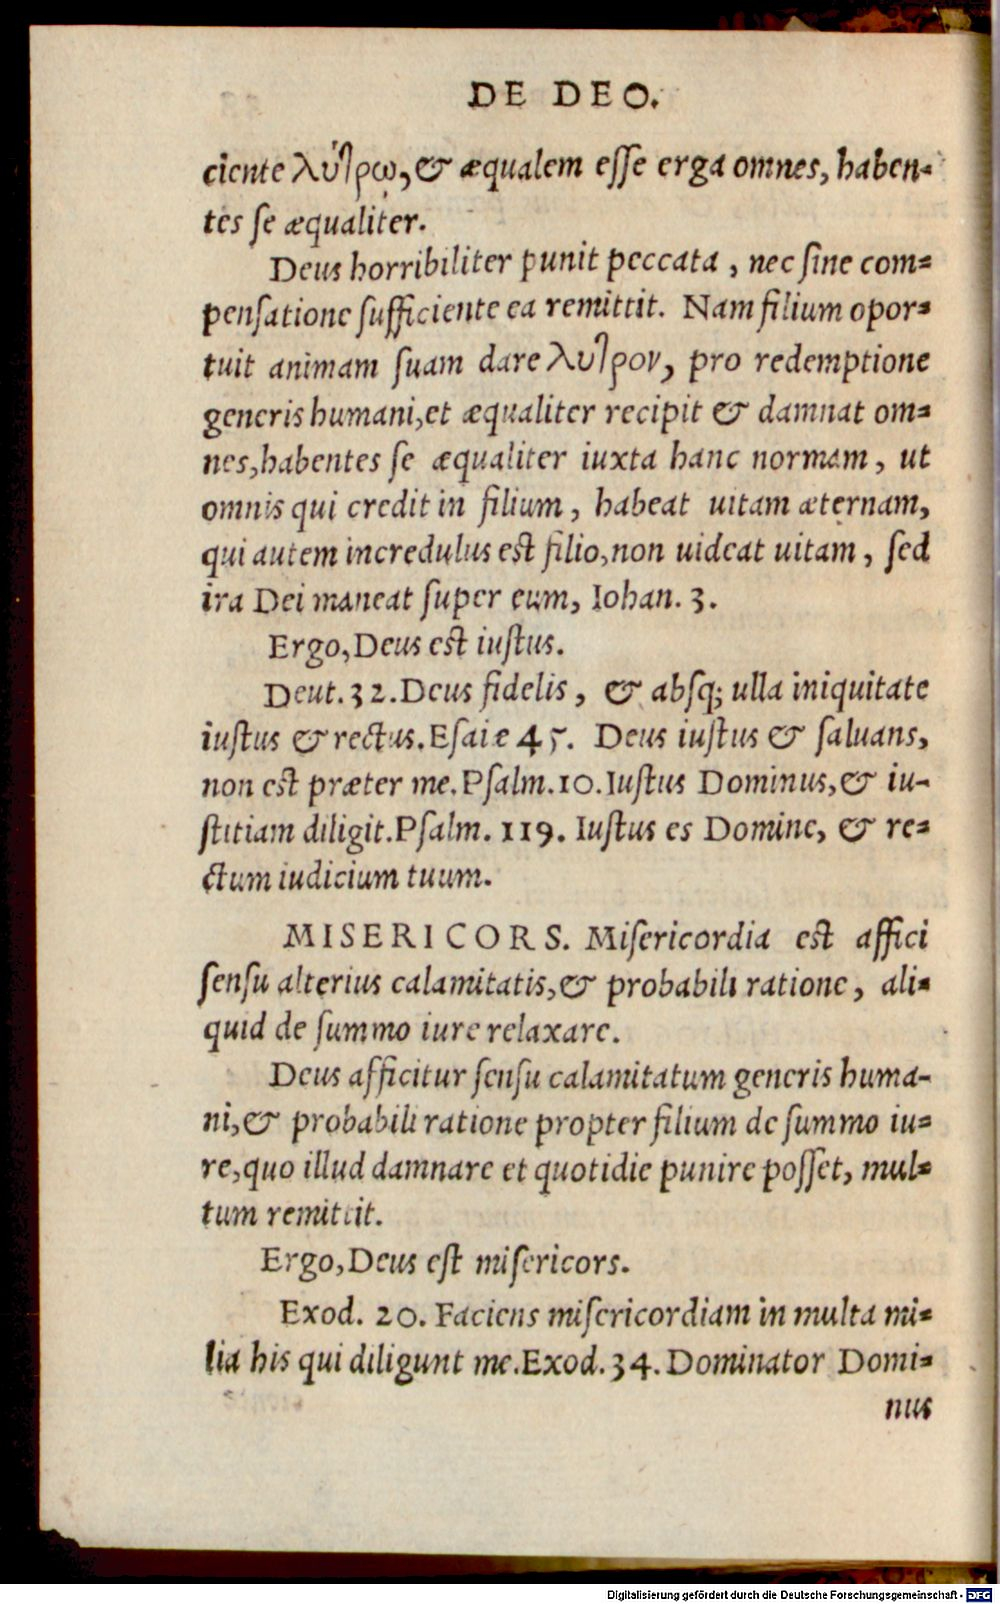 DE DEO.
ciente λύτρῳ, & æqualem esse erga omnes, haben-
tes se æqualiter.
Deus horribiliter punit peccata, nec sine com-
pensatione sufficiente ea remittit. Nam filium opor-
tuit animam suam dare λυτρον, pro redemptione
generis humani, et æqualiter recipit & damnat om-
nes, habentes se æqualiter iuxta hanc normam, ut
omnis qui credit in filium, habeat uitam æternam,
qui autem incredulus est filio, non uideat uitam, sed
ira Dei maneat super eum, Iohan. 3.
Ergo, Deus est iustus.
Deut. 32. Deus fidelis, & absq; ulla iniquitate
iustus & rectus. Esaiæ 45. Deus iustus & saluans,
non est præter me. Psalm. 10. Iustus Dominus, & iu-
stitiam diligit. Psalm. 119. Iustus es Domine, & re-
ctum iudicium tuum.
MISERICORS. Misericordia est affici
sensu alterius calamitatis, & probabili ratione, ali-
quid de summo iure relaxare.
Deus afficitur sensu calamitatum generis huma-
ni, & probabili ratione propter filium de summo iu-
re, quo illud damnare et quotidie punire posset, mul-
tum remittit.
Ergo, Deus est misericors.
Exod. 20. Faciens misericordiam in multa mi-
lia his qui diligunt me. Exod. 34. Dominator Domi-
nus
Digitalisierung gefördert durch die Deutsche Forschungsgemeinschaft - DFG